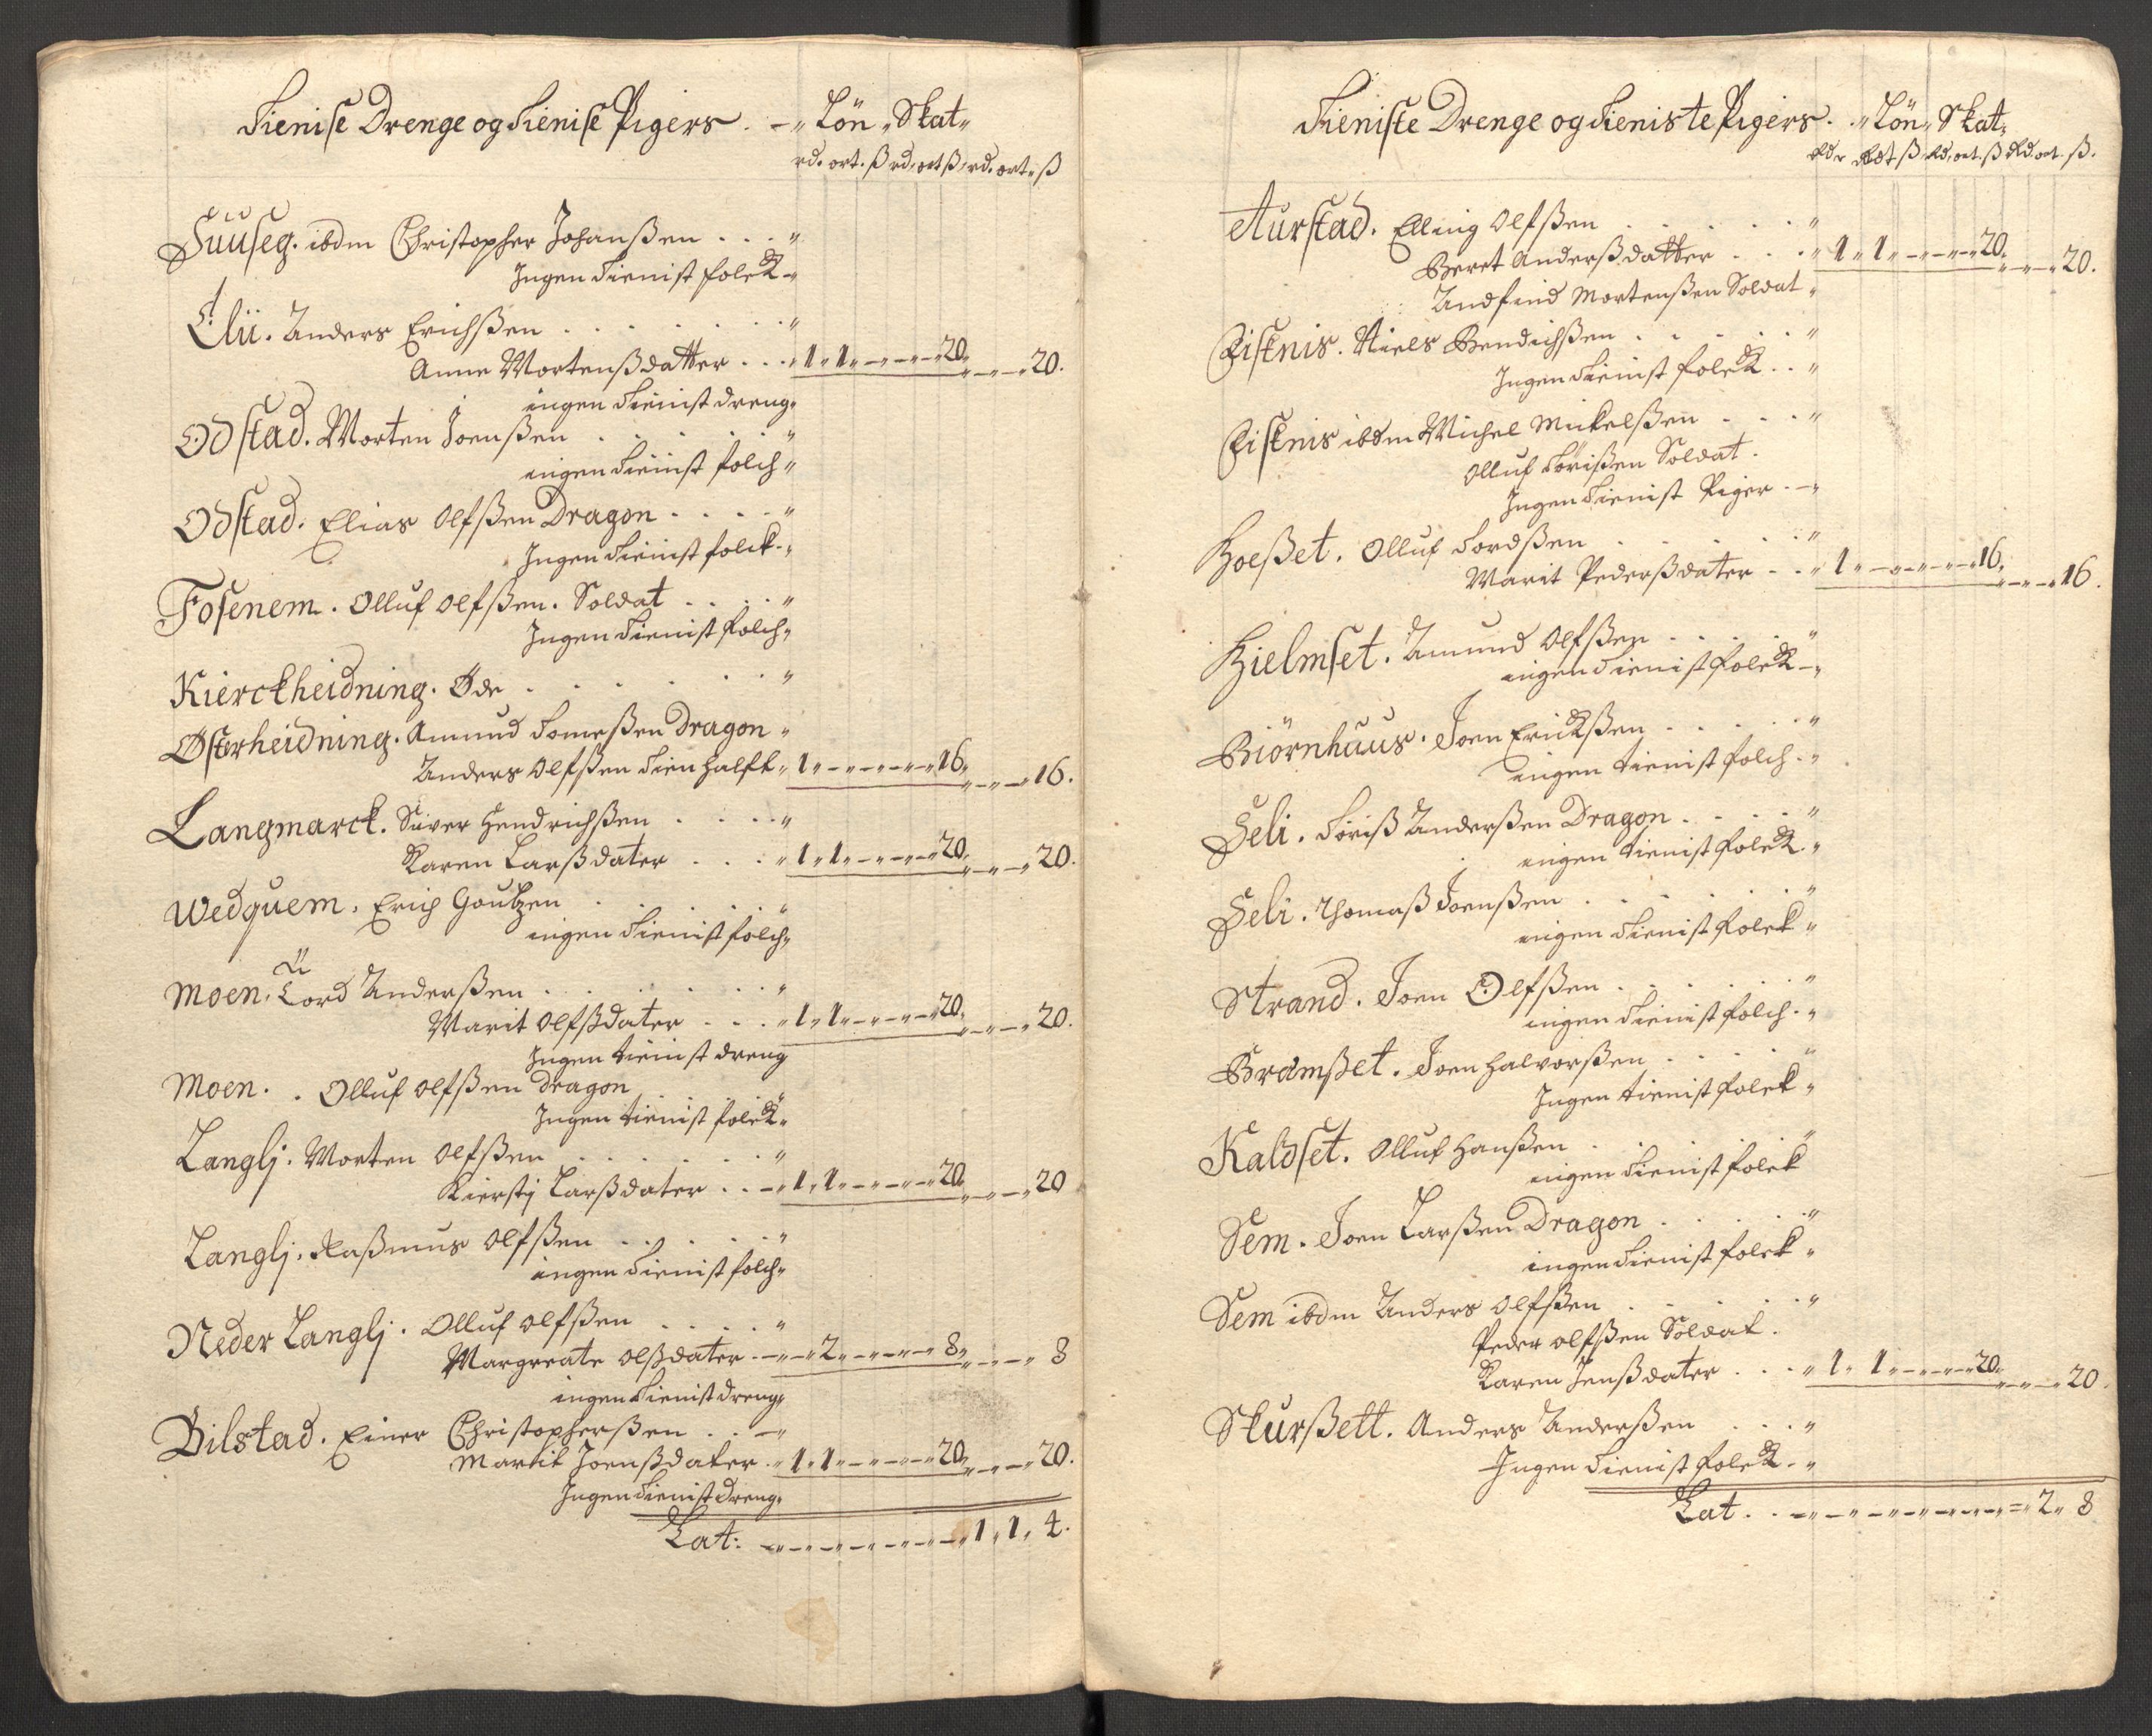 Tieniste Drenge og Tieniste Pigers . - „ Lön „ Skat „
rd. ort. ß rd. ort ß rd. ort. ß
Suuseg. ibdm Christopher Johanßen . . . „
Ingen tienist folck „
Elii. Anders Erichßen . . . „
Anne Mortenßdatter . . . „ 1 „ 1 „ – „ – „ – „ 20 „ – „ – „ 20.
ingen tienist dreng „
Odstad. Morten Joenßen . . . „
ingen tienist folch „
Odstad. Elias Olfßen Dragon . . . „
Ingen tienist folck. „
Fosenem. Olluf Olfßen. Soldat . . . „
Ingen tienist folch „
Kierckheidning. Øde . . . „
Østerheidning. Amund Tomeßen Dragon „
Anders Olfßen tien halft „ 1 „ – „ – „ – „ – „ 16 „ – „ – „ 16.
Langmarck. Siver Hendrichßen . . . „
Karen Larßdater . . . „ 1 „ 1 „ – „ – „ – „ 20 „ – „ – „ 20.
Wedquem. Erich Goutzen . . . „
ingen tienist folch „
Moen. Tord Anderßen . . . „
Marit Olfßdater . . . „ 1 „ 1 „ – „ – „ – „ 20 „ – „ – „ 20.
Ingen tienist dreng
Moen. . Olluf Olfßen Dragon . . „
Ingen tienist folck „
Langlj. Morten Olfßen . . . „
Kierstj Larßdater . . – „ 1 „ 1 „ – „ – „ – „ 20 „ – „ – „ 20
Langlj. Raßmus Olfßen . . . „
ingen tienist folch „
Neder Langlj. Olluf Olfßen . . . „
Margreate Olßdater . – „ – „ 2 „ – „ – „ – „ 8 „ – „ – „ 8
ingen tienist dreng „
Bilstad. Einer Christopherßen . . – „
Marit Joenßdater . „ 1 „ 1 „ – „ – „ – „ 20 „ – „ – „ 20.
Ingen tienist dreng „
Lat: – „ – „ – „ – „ – „ – „ – „ 1 „ 1 „ 4.
Tieniste Drenge og Tieniste Pigers . . „ Lön „ Skat „
Rdr ort ß Rd. ort. ß Rd. ort. ß.
Aurstad. Elling Olfßen . . . „
Beret Anderßdatter . . . „ 1 „ 1 „ – „ – „ – „ 20 „ – „ – „ 20.
Andfind Mortenßen Soldat „
Fisknis. Niels Bendichßen . . . „
Ingen tienist folck . . „
Fisknis ibdm Michel Mickelßen . . . „
Olluf Törißen Soldat.
Ingen tienist Piger . – „
Hoeßet. Olluf Tordßen . . . „
Marit Pederßdater . . „ 1 „ – „ – „ – „ – „ 16 „ – „ – „ 16.
Hielmset. Amund Olfßen . . . „
ingen tienist folck – „
Biörnhuus. Joen Erickßen . . . „
ingen tienist folch . „
Seli. Töriß Anderßen Dragon . . . „
ingen tienist folck . „
Seli. Thomaß Joenßen . . . „
ingen tienist folck „
Strand. Joen Olfßen . . . „
ingen tienist folch . „
Bramßet. Joen Halvorßen . . . „
Ingen tienist folck „
Kaldset. Olluf Hanßen . . . „
ingen tienist folck
Sem. Joen Larßen Dragon . . . „
ingen tienist folck „
Sem ibdm Anders Olfßen . . . „
Peder Olfßen Soldat.
Karen Jenßdater . . . „ 1 „ 1 „ – „ – „ – „ 20 „ – „ – „ 20.
Skurßett. Anders Anderßen . . . „
Ingen tienist folck . „
Lat . . – „ – „ – „ – „ – „ – „ – „ 2 „ 8